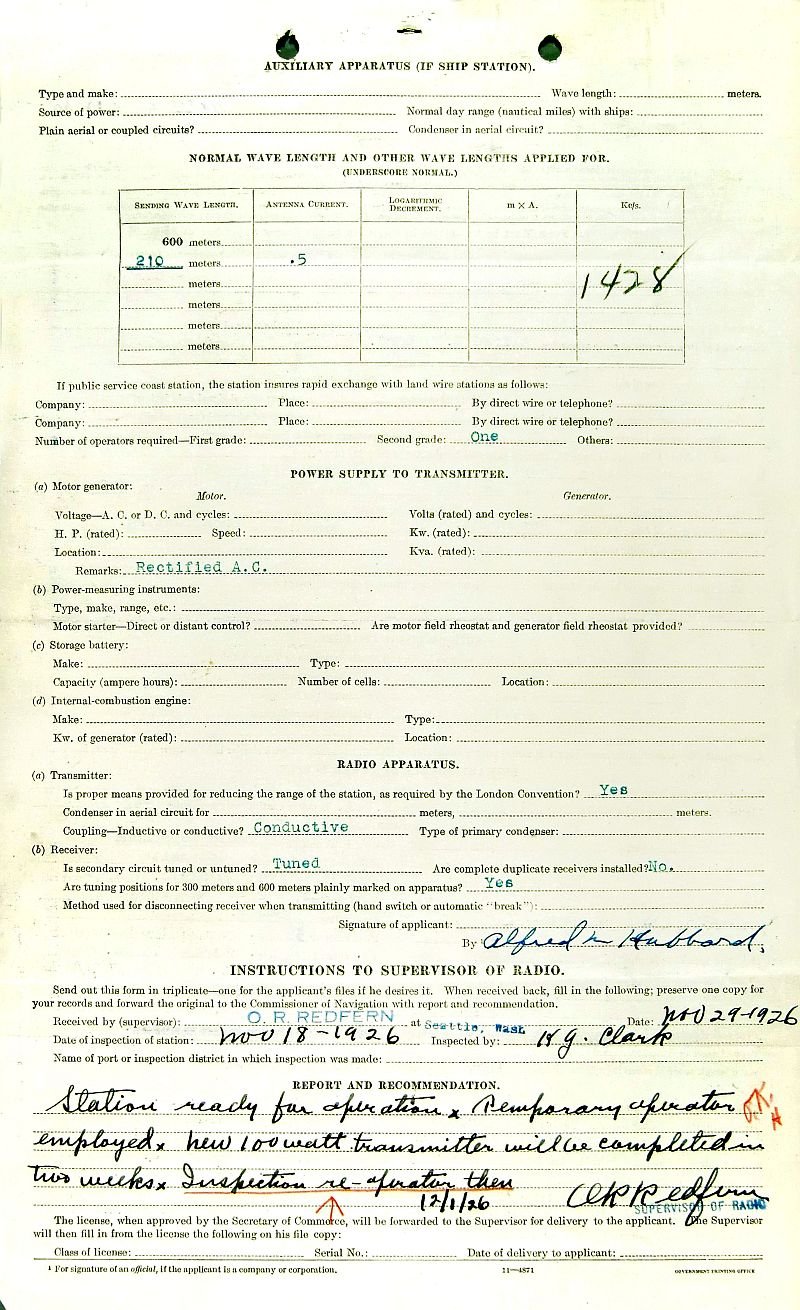 AUXILIARY APPARATUS (IF SHIP STATION).
Type and make: Wave length: meters.
Source of power: Normal day range (nautical miles) with ships:
Plain aerial or coupled circuits? Condenser in aerial circuit?
NORMAL WAVE LENGTH AND OTHER WAVE LENGTHS APPLIED FOR.
(UNDERSCORE NORMAL.)
SENDING WAVE LENGTH. ANTENNA CURRENT. LOGARITHMIC DECREMENT. m X A. Kc/s.
600 meters
210 meters .5
meters 1428
meters
meters
meters
If public service coast station, the station insures rapid exchange with land wire stations as follows:
Company: Place: By direct wire or telephone?
Company: Place: By direct wire or telephone?
Number of operators required—First grade: Second grade: One Others:
POWER SUPPLY TO TRANSMITTER.
(a) Motor generator:
Motor. Generator.
Voltage—A. C. or D. C. and cycles: Volts (rated) and cycles:
H. P. (rated): Speed: Kw. (rated):
Location: Kva. (rated):
Remarks: Rectified A.C.
(b) Power-measuring instruments:
Type, make, range, etc.:
Motor starter—Direct or distant control? Are motor field rheostat and generator field rheostat provided?
(c) Storage battery:
Make: Type:
Capacity (ampere hours): Number of cells: Location:
(d) Internal-combustion engine:
Make: Type:
Kw. of generator (rated): Location:
RADIO APPARATUS.
(a) Transmitter:
Is proper means provided for reducing the range of the station, as required by the London Convention? Yes
Condenser in aerial circuit for meters, meters.
Coupling—Inductive or conductive? Conductive Type of primary condenser:
(b) Receiver:
Is secondary circuit tuned or untuned? Tuned Are complete duplicate receivers installed? No.
Are tuning positions for 300 meters and 600 meters plainly marked on apparatus? Yes
Method used for disconnecting receiver when transmitting (hand switch or automatic "break"):
Signature of applicant:
By Alfred M Hubbard,
INSTRUCTIONS TO SUPERVISOR OF RADIO.
Send out this form in triplicate—one for the applicant's files if he desires it. When received back, fill in the following; preserve one copy for
your records and forward the original to the Commissioner of Navigation with report and recommendation.
Received by (supervisor): O. R. REDFERN at Seattle, Wash Date: Nov 29-1926
Date of inspection of station: Nov 18-1926 Inspected by: H G. Clark
Name of port or inspection district in which inspection was made:
REPORT AND RECOMMENDATION.
Station ready for operation x Temporary operator
employed x New 100 watt transmitter will be completed in
two weeks x Inspection re-operator then
12/1/26 O R Redfern
SUPERVISOR OF RADIO
The license, when approved by the Secretary of Commerce, will be forwarded to the Supervisor for delivery to the applicant. The Supervisor
will then fill in from the license the following on his file copy:
Class of license: Serial No.: Date of delivery to applicant:
¹ For signature of an official, if the applicant is a company or corporation. 11—4871 GOVERNMENT PRINTING OFFICE